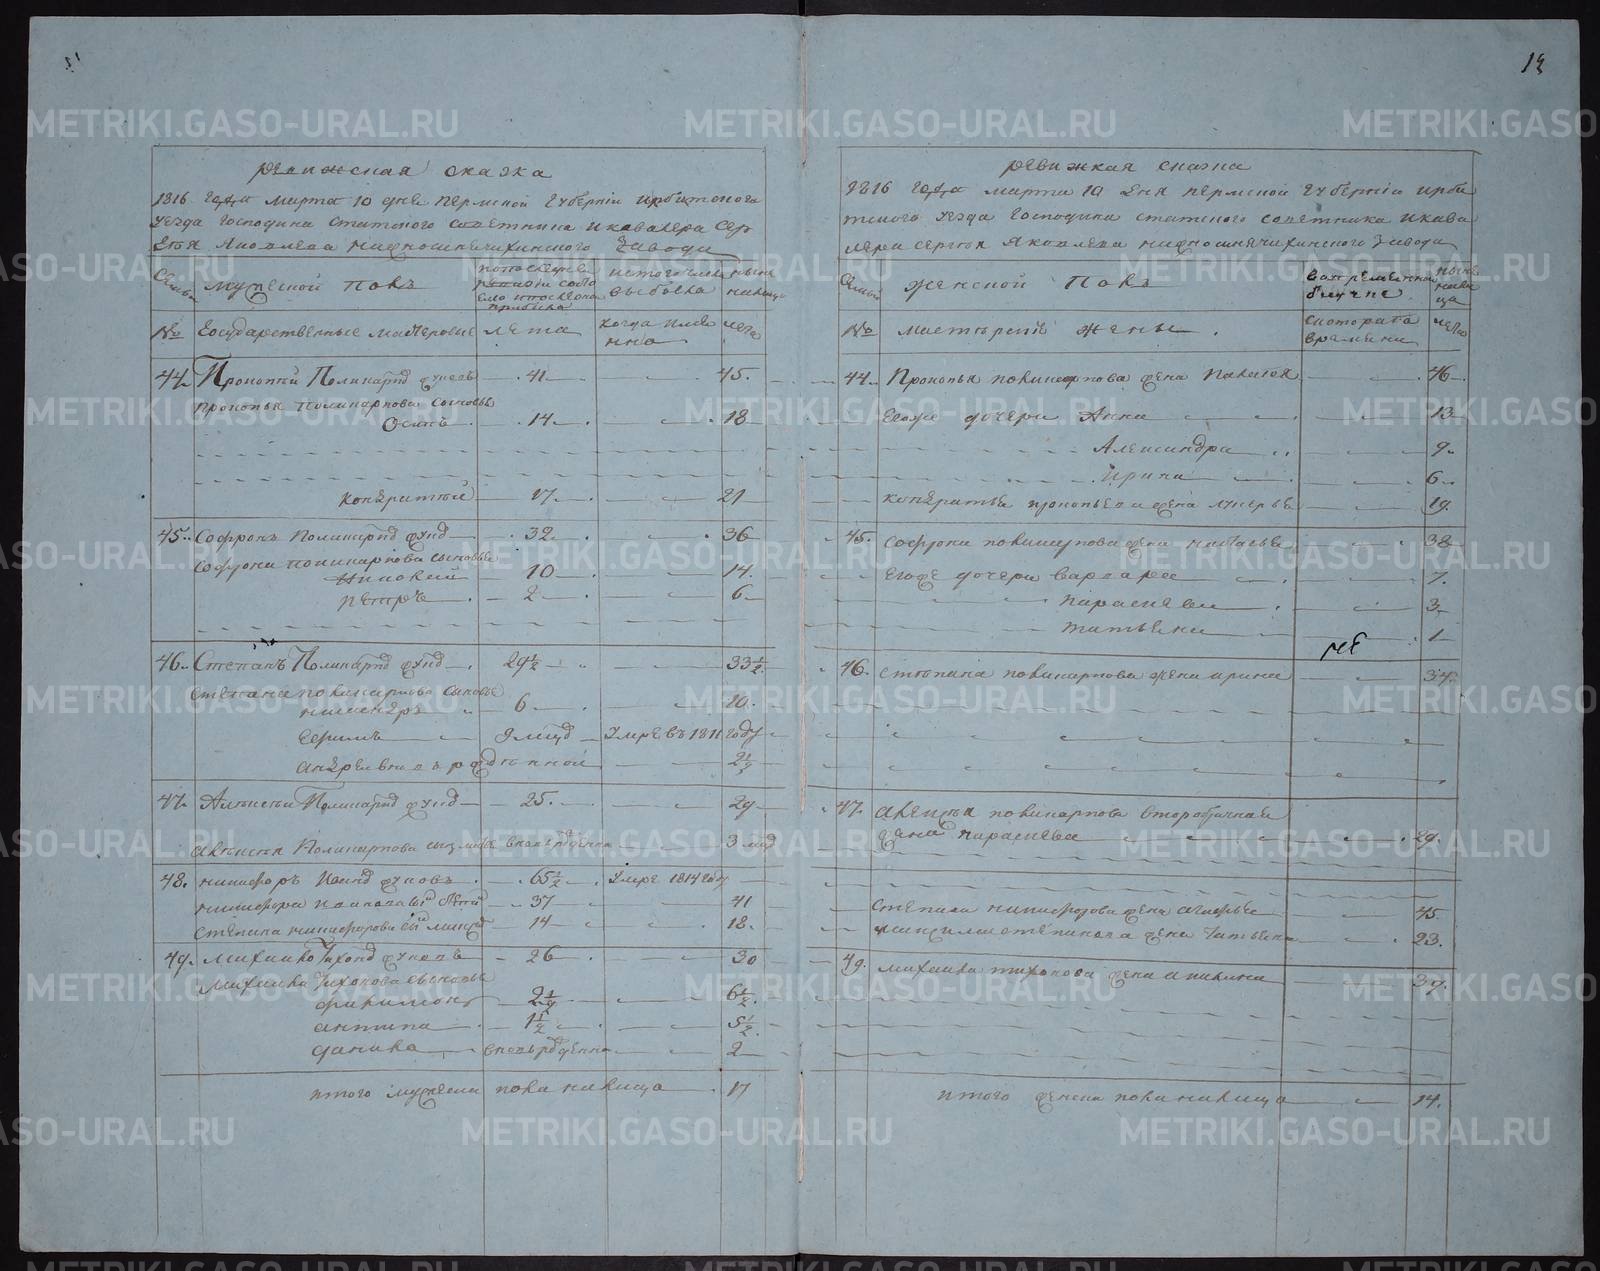 13
ревижская сказка
1816 года марта 10 дня пермской губернии ирбитского
уезда господина статского советника и кавалера Сер
гея Яковлева нижносинячихинского завода
Семьи
мужеской полъ
по последней ревизии состояло и после оной прибыло
из того числа выбыло
ныне на лицо
№
Государственные мастеровые
лета
когда именно
лета
44. Прокопий Поликарпов сынъ 41 45.
Прокопья Поликарпова сыновья
Осипъ 14. 18
Кондратий 17. 21
45. Софронъ Поликарпов 32. 36
Софрона поликарпова сыновья
10 14.
петръ 2 6
46. Степанъ Поликарпов 29½ 33½
Степана поликарпова сыновья
никифоръ 6 10.
9 умре въ 1811 году
андрей вновь рожденной 2½
47. Алексей Поликарпов 25. 29
Алексея Поликарпова сынъ вновь рожденна 3
48. никифоръ 65½ умре 1814 году
никифора 37 41
степана никифорова сынъ 14 18.
49. Михайло Тихонов 26 30
Михайла Тихонова сыновья
филимонъ 2½ 6½.
антипа 1½ 5½.
данила вновь рожденна 2
итого мужеска пола на лицо 17
ревижская сказка
1816 года марта 10 дня пермской губернии ирби
тского уезда господина статского советника и кава
лера сергея Яковлева нижносинячихинского завода
Семьи
женской полъ
во временной отлучке
ныне на лицо
№
мастерские жены
с которого времени
лета
44. Прокопья поликарпова жена Палагея 46
Егоже дочери Анна 13
Александра 9.
Ирина 6
кондратья прокопьева жена лукерья 19.
45. софрона поликарпова жена настасья 38
егоже дочери варвара 7.
парасковья 3
татьяна 1
46. степана поликарпова жена ирина 34.
47. алексея поликарпова второбрачная
жена парасковья 29.
степана никифорова жена агафья 45.
максима степанова жена татьяна 23.
49. михайла тихонова жена акилина 39.
итого женска пола на лицо 14.
METRIKI.GASO-URAL.RU